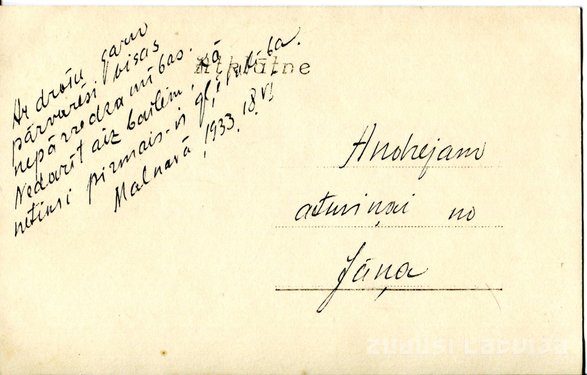 Ar drošu garu
pārvarēsi visas
nepārredzamības.
Nedarīt aiz bailēm, kā
pirmais ir gļēvulība.
Malnavā, 1933. 18.VI
Atklātne
Andrejam
atmiņai no
Jāņa
ZUDUSI LATVIJA